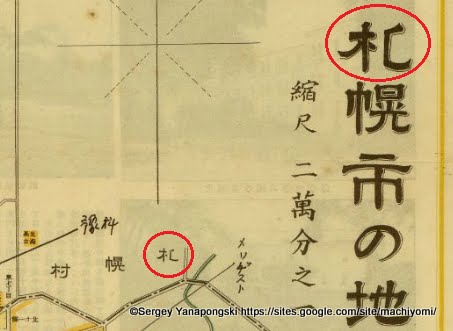 札幌市の地
縮尺 二萬分之一
豫科
札幌村
©Sergey Yanapongski https://sites.google.com/site/machiyomi/